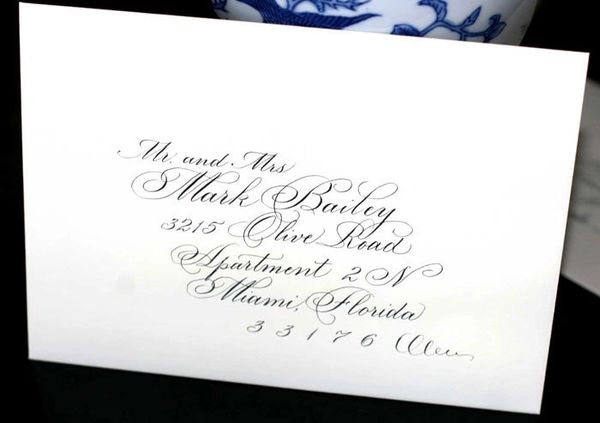 Mr. and Mrs
Mark Bailey
3215 Olive Road
Apartment 2 N
Miami, Florida
33176